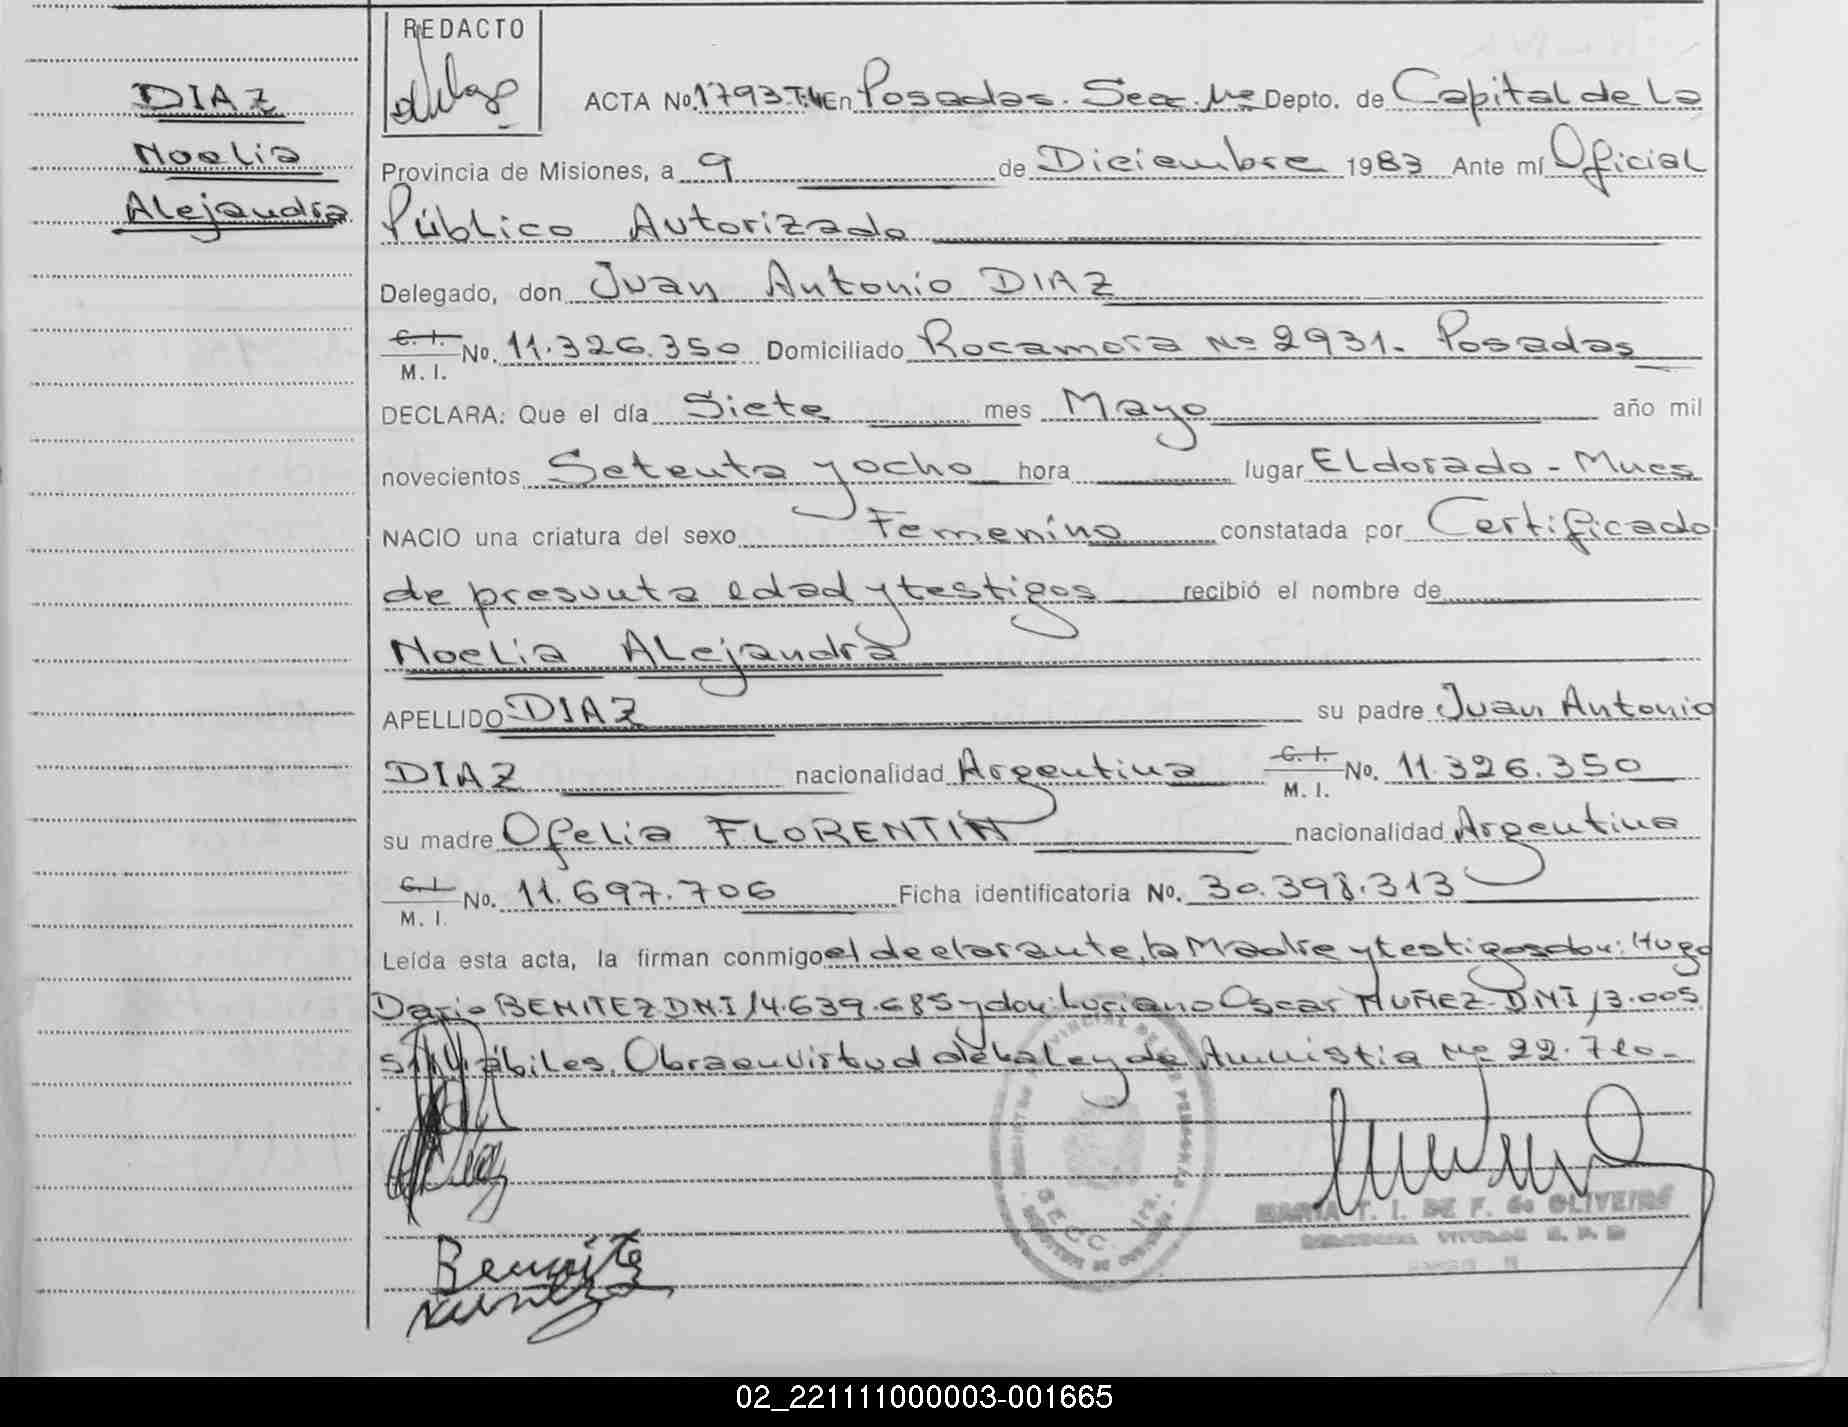 REDACTO
DIAZ
Noelia
Alejandra
ACTA No. 1793-T:4 En Posadas. Secc. 1ra Depto. de Capital de La
Provincia de Misiones, a 9 de Diciembre 1983 Ante mí Oficial
Público Autorizado
Delegado, don Juan Antonio DIAZ
C. I. M. I. No. 11.326.350 Domiciliado Rocamora Nº 2931. Posadas
DECLARA: Que el día Siete mes Mayo año mil
novecientos Setenta y ocho hora lugar ELdorado - Mnes
NACIO una criatura del sexo Femenino constatada por Certificado
de presunta edad y testigos recibió el nombre de
Noelia ALejandra
APELLIDO DIAZ su padre Juan Antonio
DIAZ nacionalidad Argentina C. I. M. I. No. 11.326.350
su madre Ofelia FLORENTIN nacionalidad Argentina
C. I. M. I. No. 11.697.706 Ficha identificatoria No. 30.398.313
Leída esta acta, la firman conmigo el declarante, la Madre y testigos don: Hugo
Dario BENITEZ D.N.I 14.639.685 y don: Luciano Oscar NUÑEZ. D.N.I 13.005.
hábiles. Obra en virtud de la Ley de Amnistia Nº 22.710-
MARIA T. I. DE F. de OLIVEIRA
02_221111000003-001665